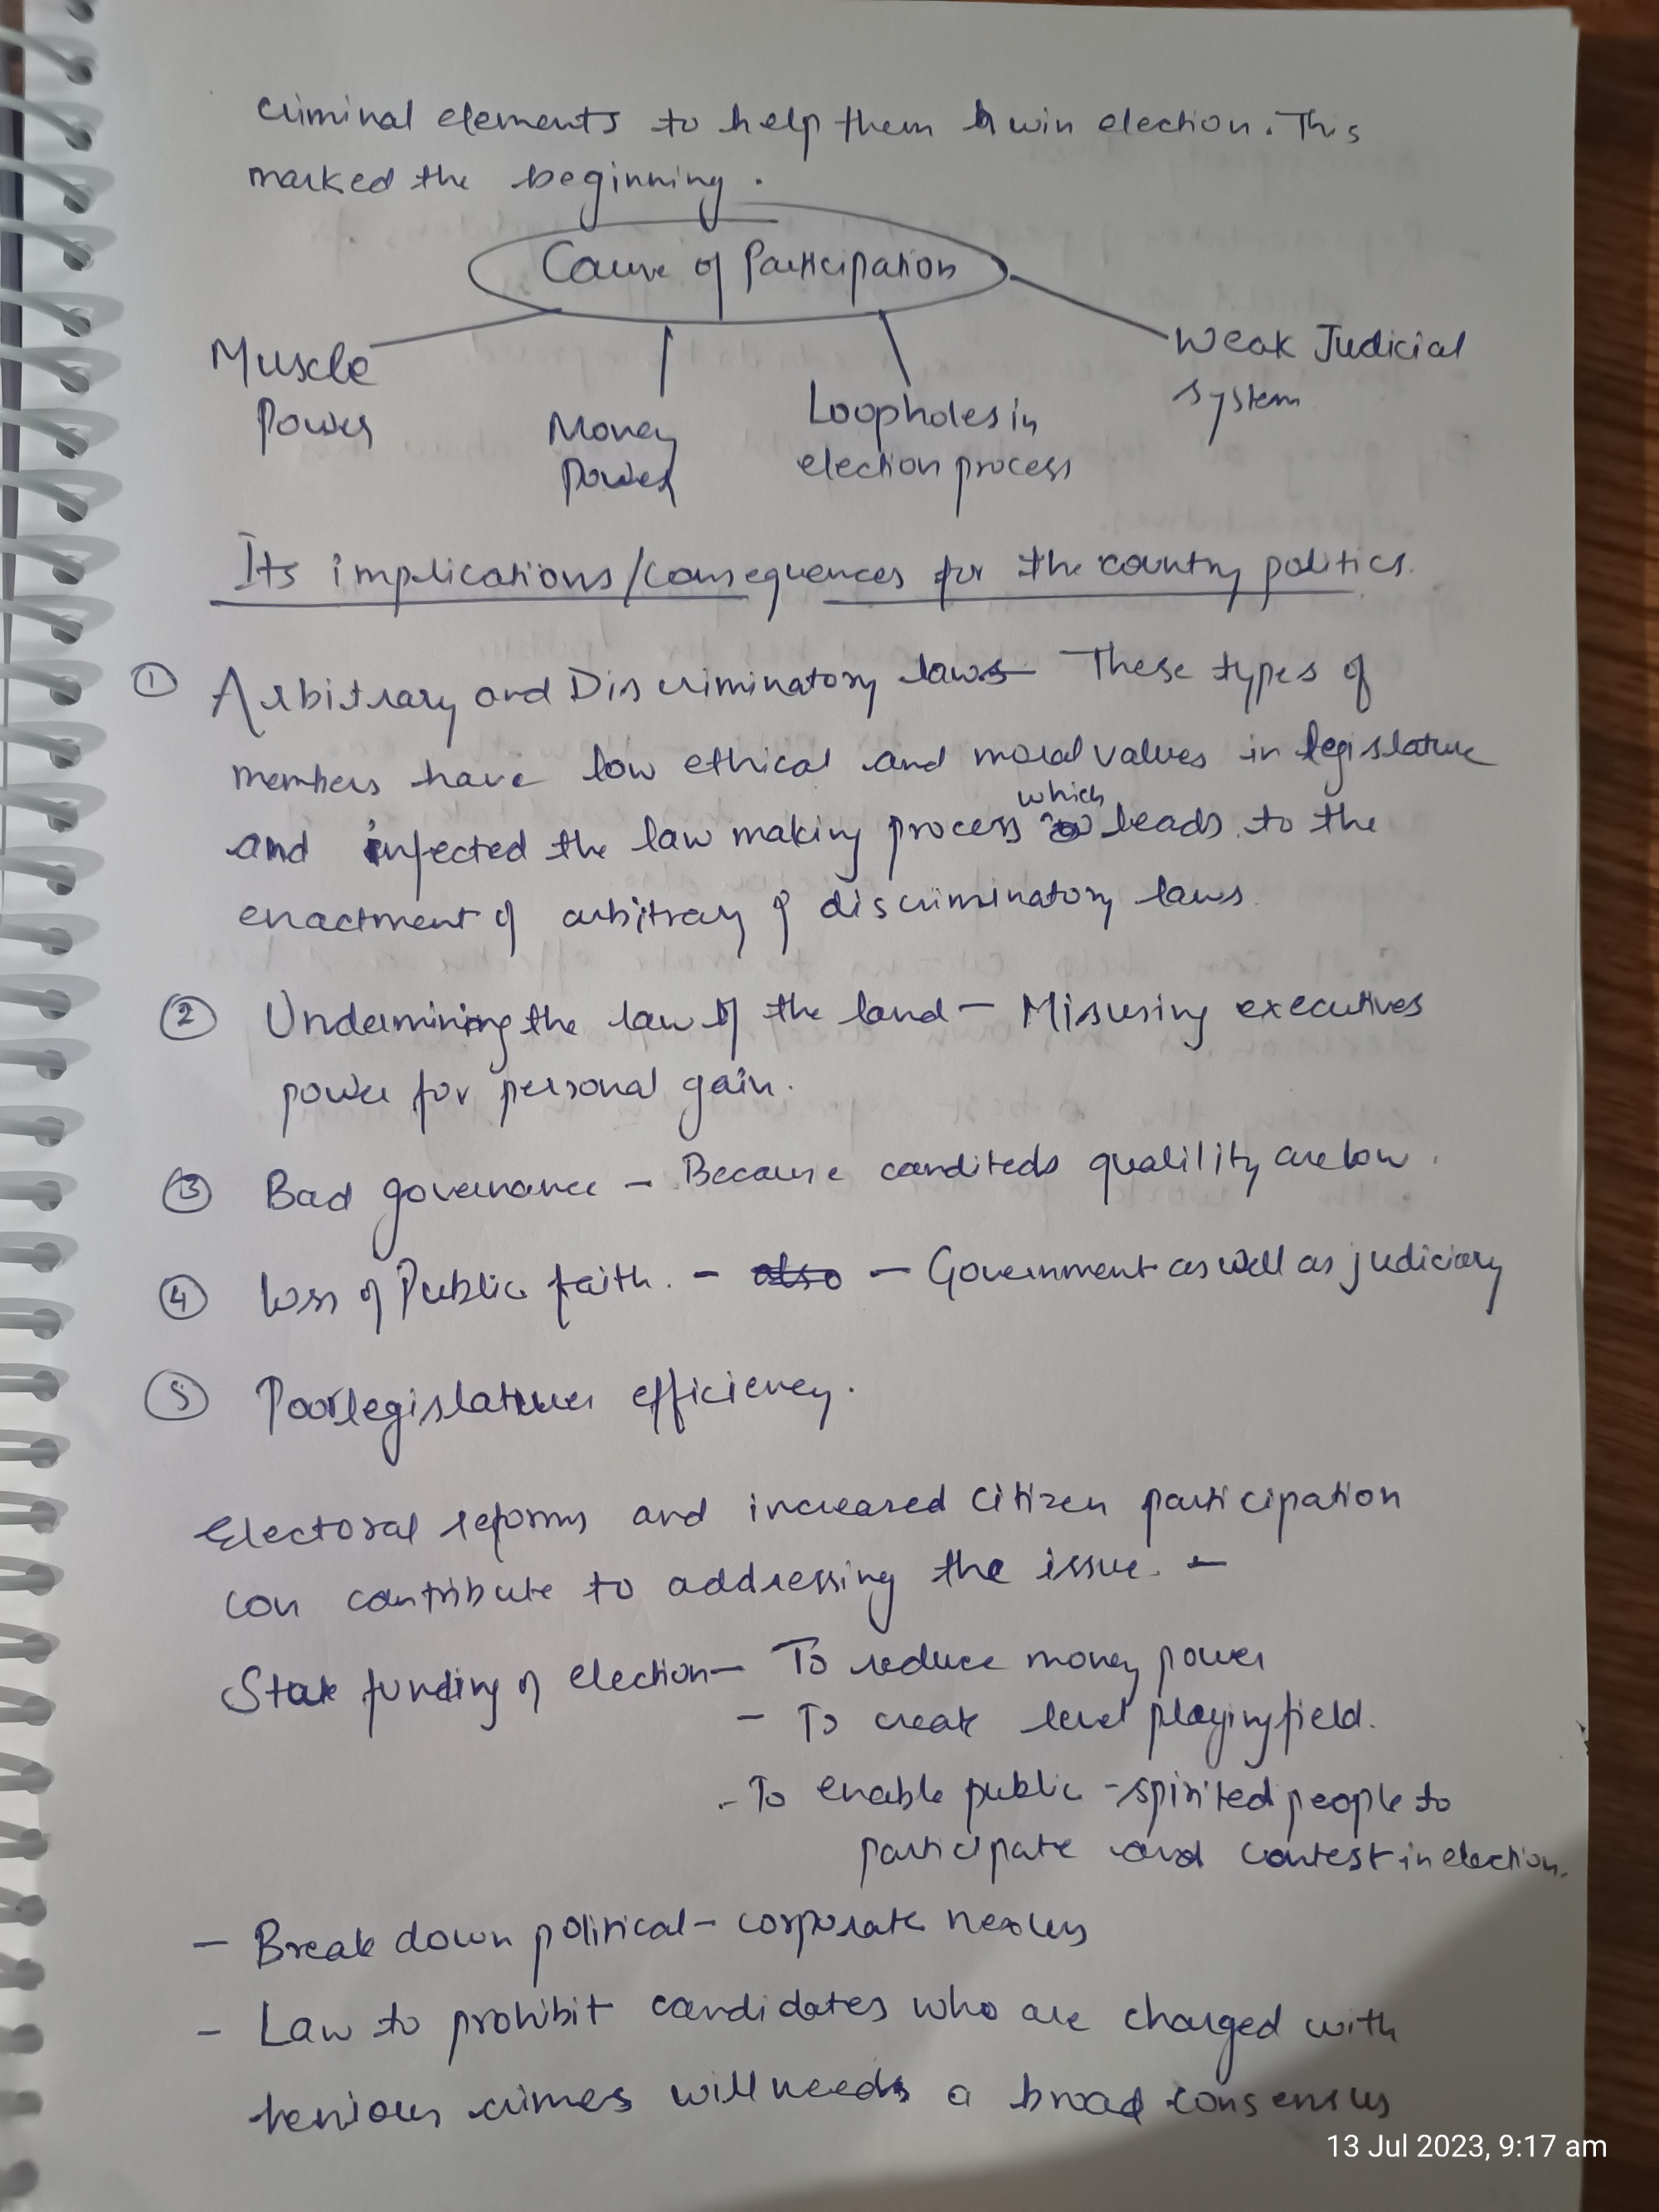 criminal elements to help them win election. This
marked the beginning.
Cause of Participation
Muscle
Power
Money
Power
Loopholes in
election process
Weak Judicial
system
Its implications/consequences for the country politics.
① Arbitrary and Discriminatory laws- These types of
members have low ethical and moral values in legislature
and infected the law making process which leads to the
enactment of arbitrary & discriminatory laws.
② Undermining the law of the land - Misusing executives
power for personal gain.
③ Bad governance - Because canditeds qualility are low.
④ Loss of Public faith. - also - Government as well as judiciary
⑤ Poor legislatures efficiency.
Electoral reforms and increased citizen participation
can contribute to addressing the issue. -
State funding of election- To reduce money power
- To create level playing field.
- To enable public-spirited people to
participate and contest in election.
- Break down political-corporate nexus
- Law to prohibit candidates who are charged with
henious crimes will needs a broad consensus
13 Jul 2023, 9:17 am